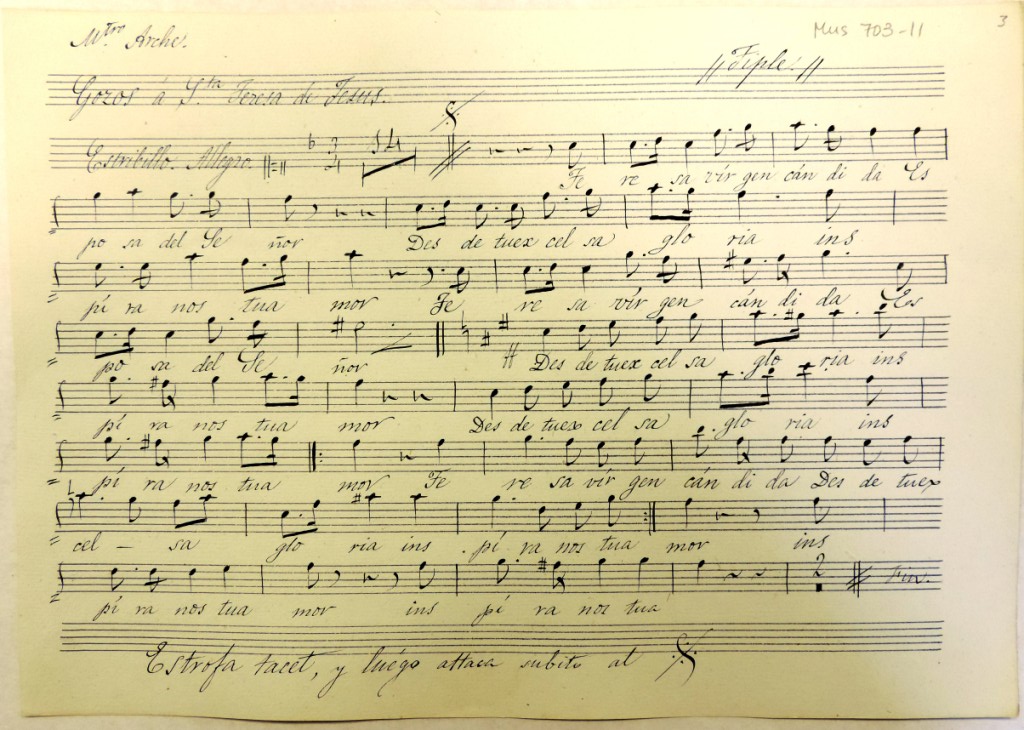 Mtro Arche.
Mus 703-11
3
Tiple.
Gozos á Sta Teresa de Jesus.
Estribillo. Allegro. 3 4 14
Te re sa vír gen cán di da Es
po sa del Se ñor Des de tuex cel sa glo ria ins
pí ra nos tua mor Te re sa vír gen cán di da Es
po sa del Se ñor Des de tuex cel sa glo ria ins
pí ra nos tua mor Des de tuex cel sa glo ria ins
pí ra nos tua mor Te re sa vír gen cán di da Des de tuex
cel - sa glo ria ins pí ra nos tua mor ins
2 Fin.
pí ra nos tua mor ins pí ra nos tua
Estrofa tacet, y luégo attaca subito al